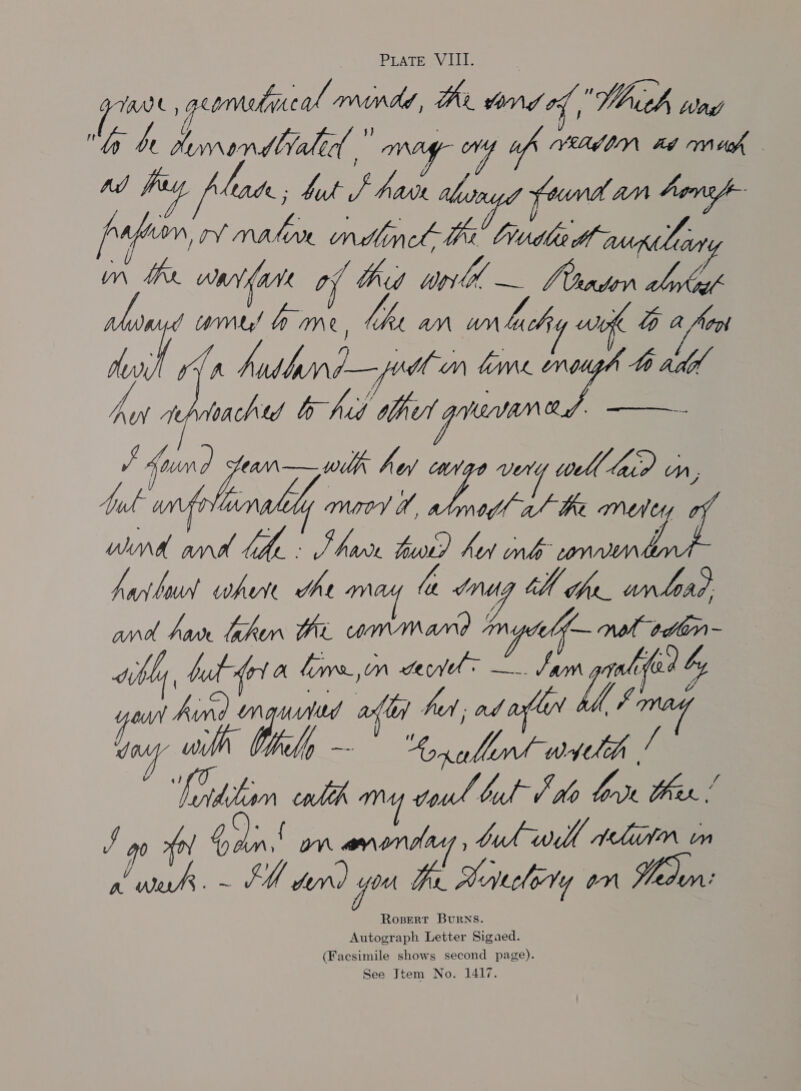 PLATE VIII.
grave, geometrical minds, the sons of, "Which was
"to be demonstrated," may cry up reason as much
as they please; but I have always found an honest
passion, or native instinct, the trustiest auxiliary
in the warfare of this world. — Reason almost
always comes to me, like an unlucky wife to a poor
devil of a husband — just in time enough to add
her reproaches to his other grievances. ———
I found Jean — with her cargo very well laid in,
but unfortunately moor'd, almost at the mercy of
wind and tide: I have towed her into convenient
harbour where she may lie snug till she unload,
and have taken the command myself — not osten-
sibly, but for a time, in secret. — I am gratified by
your kind enquiries after her; as after all, I may
say with Othello — "Excellent wretch!
"Perdition catch my soul but I do love thee!
I go for Edinr on monday, but will return in
a week. ~ I'll send you the Directory on Weden:
ROBERT BURNS.
Autograph Letter Sigaed.
(Facsimile shows second page).
See Jtem No. 1417.